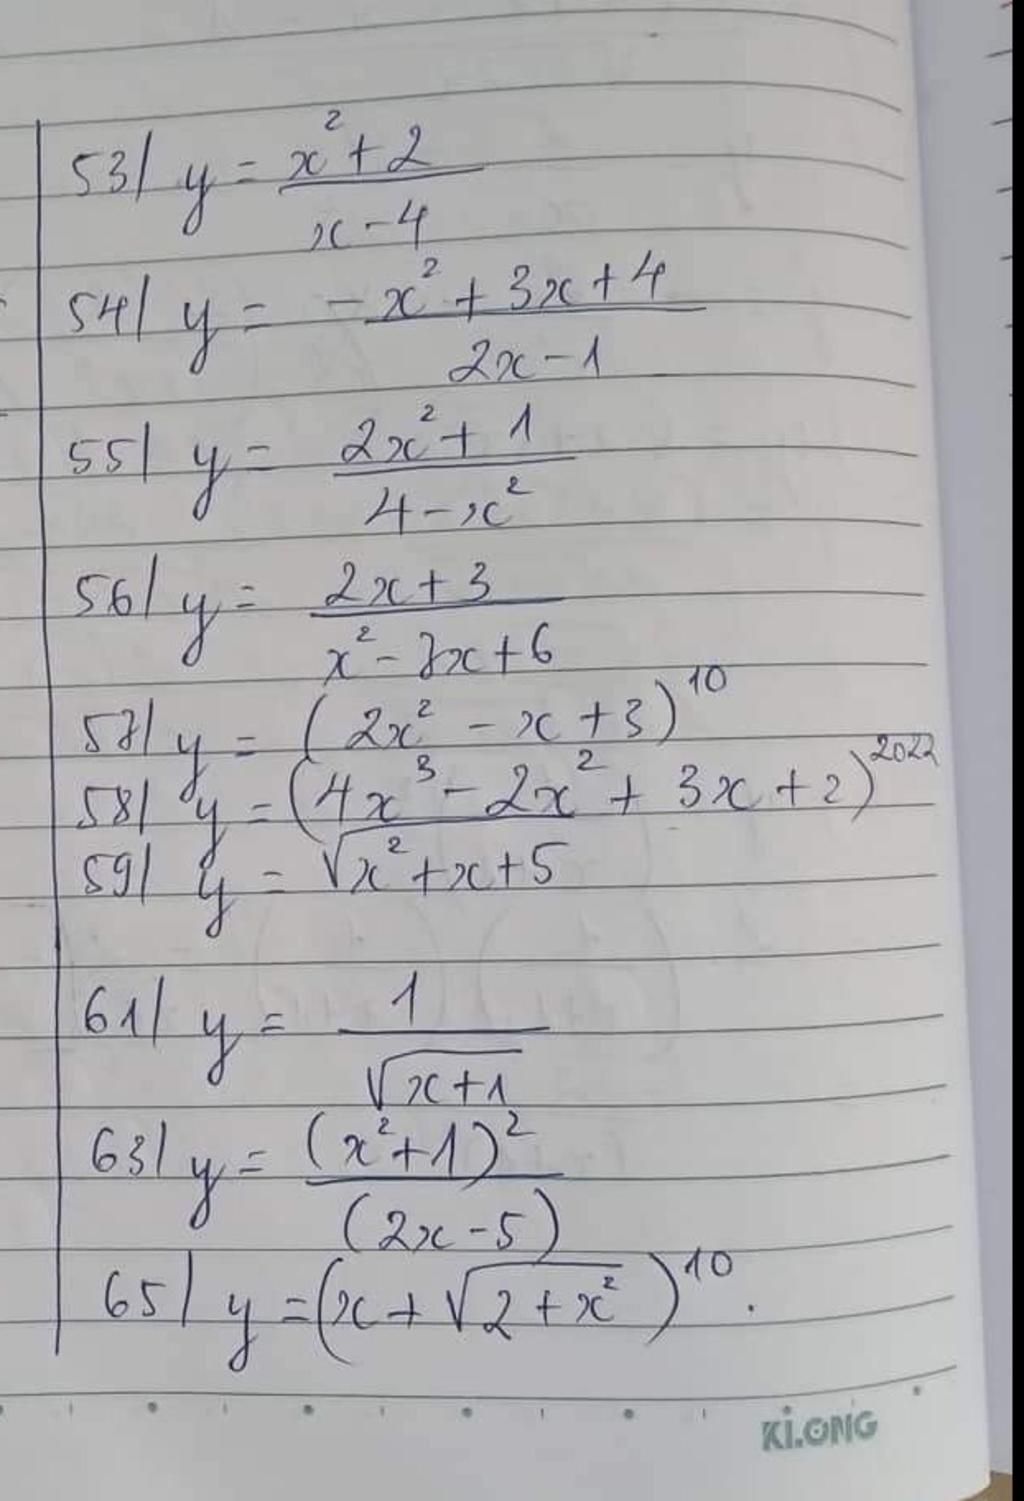 53/ y = (x² + 2)/(x - 4)
54/ y = (-x² + 3x + 4)/(2x - 1)
55/ y = (2x² + 1)/(4 - x²)
56/ y = (2x + 3)/(x² - 7x + 6)
57/ y = (2x² - x + 3)¹⁰
58/ y = (4x³ - 2x² + 3x + 2)²⁰²²
59/ y = √(x² + x + 5)
61/ y = 1/√(x + 1)
63/ y = (x² + 1)²/(2x - 5)
65/ y = (x + √(2 + x²))¹⁰.
KLONG